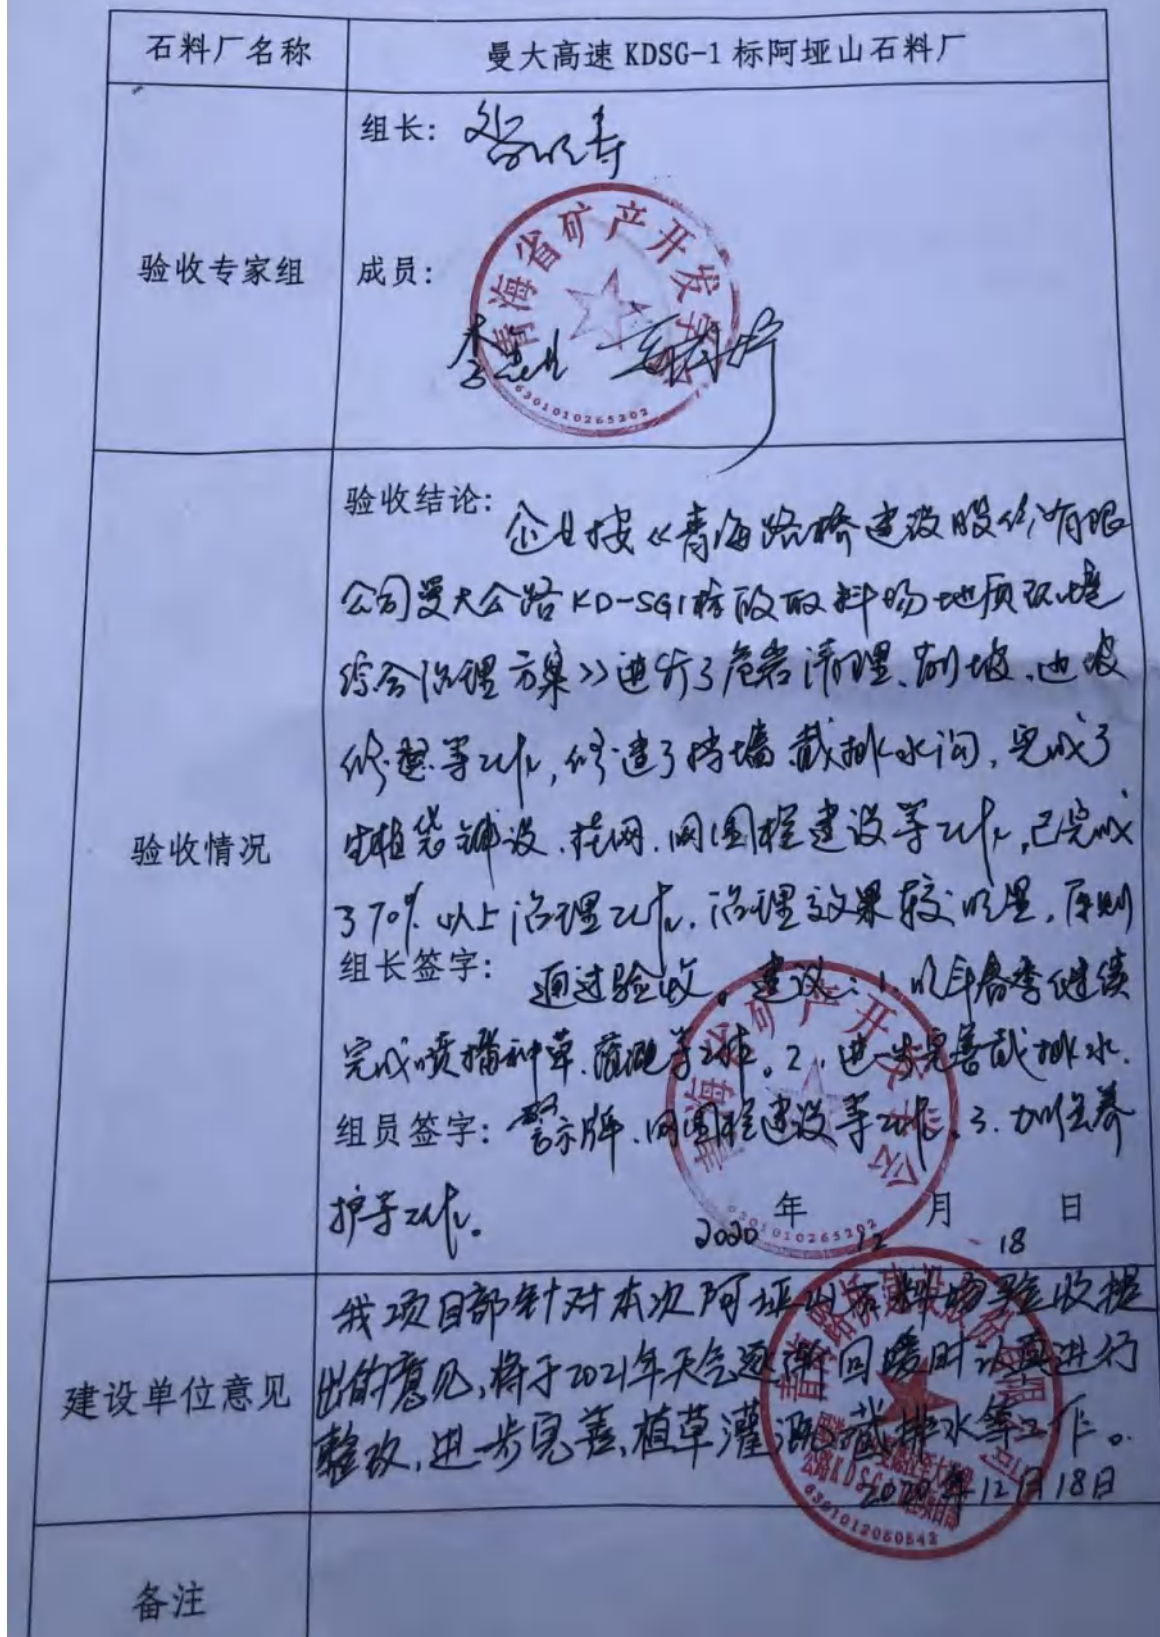 石料厂名称
曼大高速 KDSG-1 标阿垭山石料厂
验收专家组
组长:
成员:
青海省矿产开发学会
6301010265202
验收情况
验收结论:
企业按《青海路桥建设股份有限
公司曼大公路KD-SG1标段取料场地质环境
综合治理方案》进行了危岩清理、削坡、边坡
修整等工作,修建了挡墙、截排水沟,完成了
生植袋铺设、挂网、网围栏建设等工作,已完成
了70%以上治理工作,治理效果较明显,原则
组长签字:
通过验收。建议:1、明年春季继续
完成喷播种草、灌溉等工作。2、进一步完善截排水、
组员签字:
警示牌、网围栏建设等工作。3、加强养
护等工作。
2020年12月18日
青海省矿产开发学会
6301010265202
建设单位意见
我项目部针对本次阿垭山石料场验收提
出的意见,将于2021年天气逐渐回暖时认真进行
整改,进一步完善、植草灌溉、截排水等工作。
2020年12月18日
青海路桥建设股份有限公司
6301012060542
备注